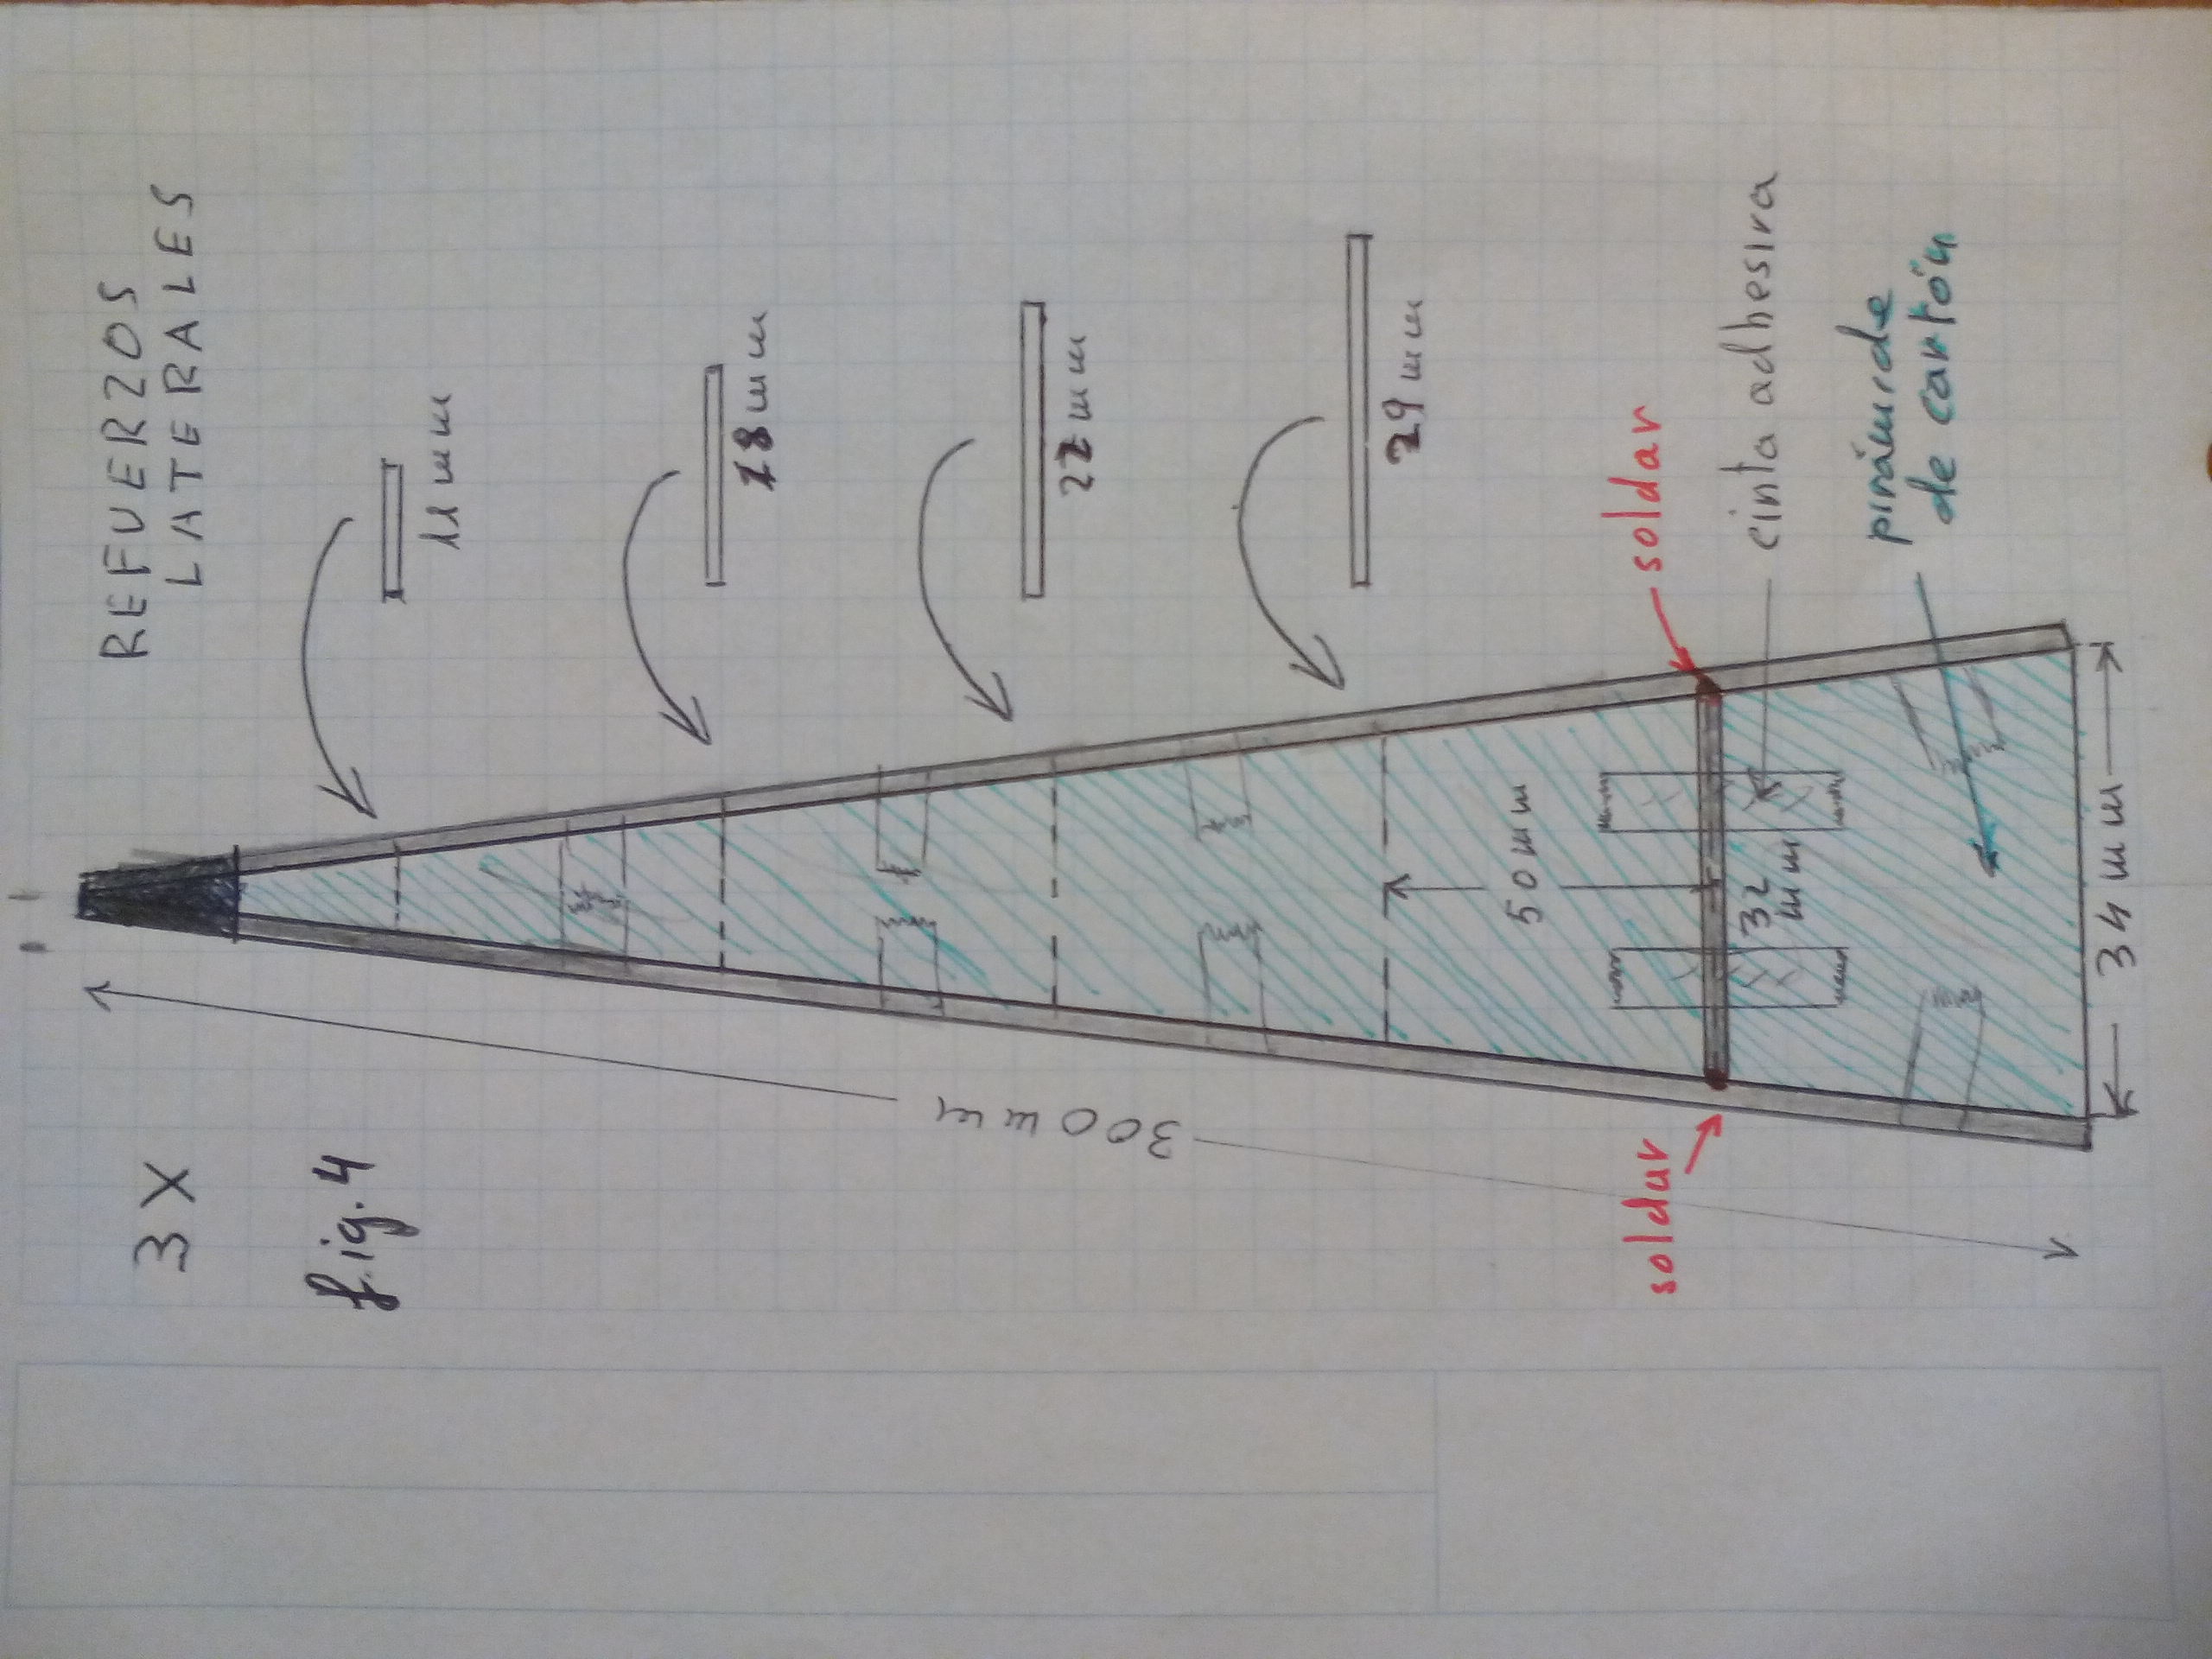 REFUERZOS
LATERALES
3X
fig. 4
11mm
18mm
22mm
29mm
300mm
50mm
32
mm
34mm
soldar
soldar
cinta adhesiva
pirámide
de cartón